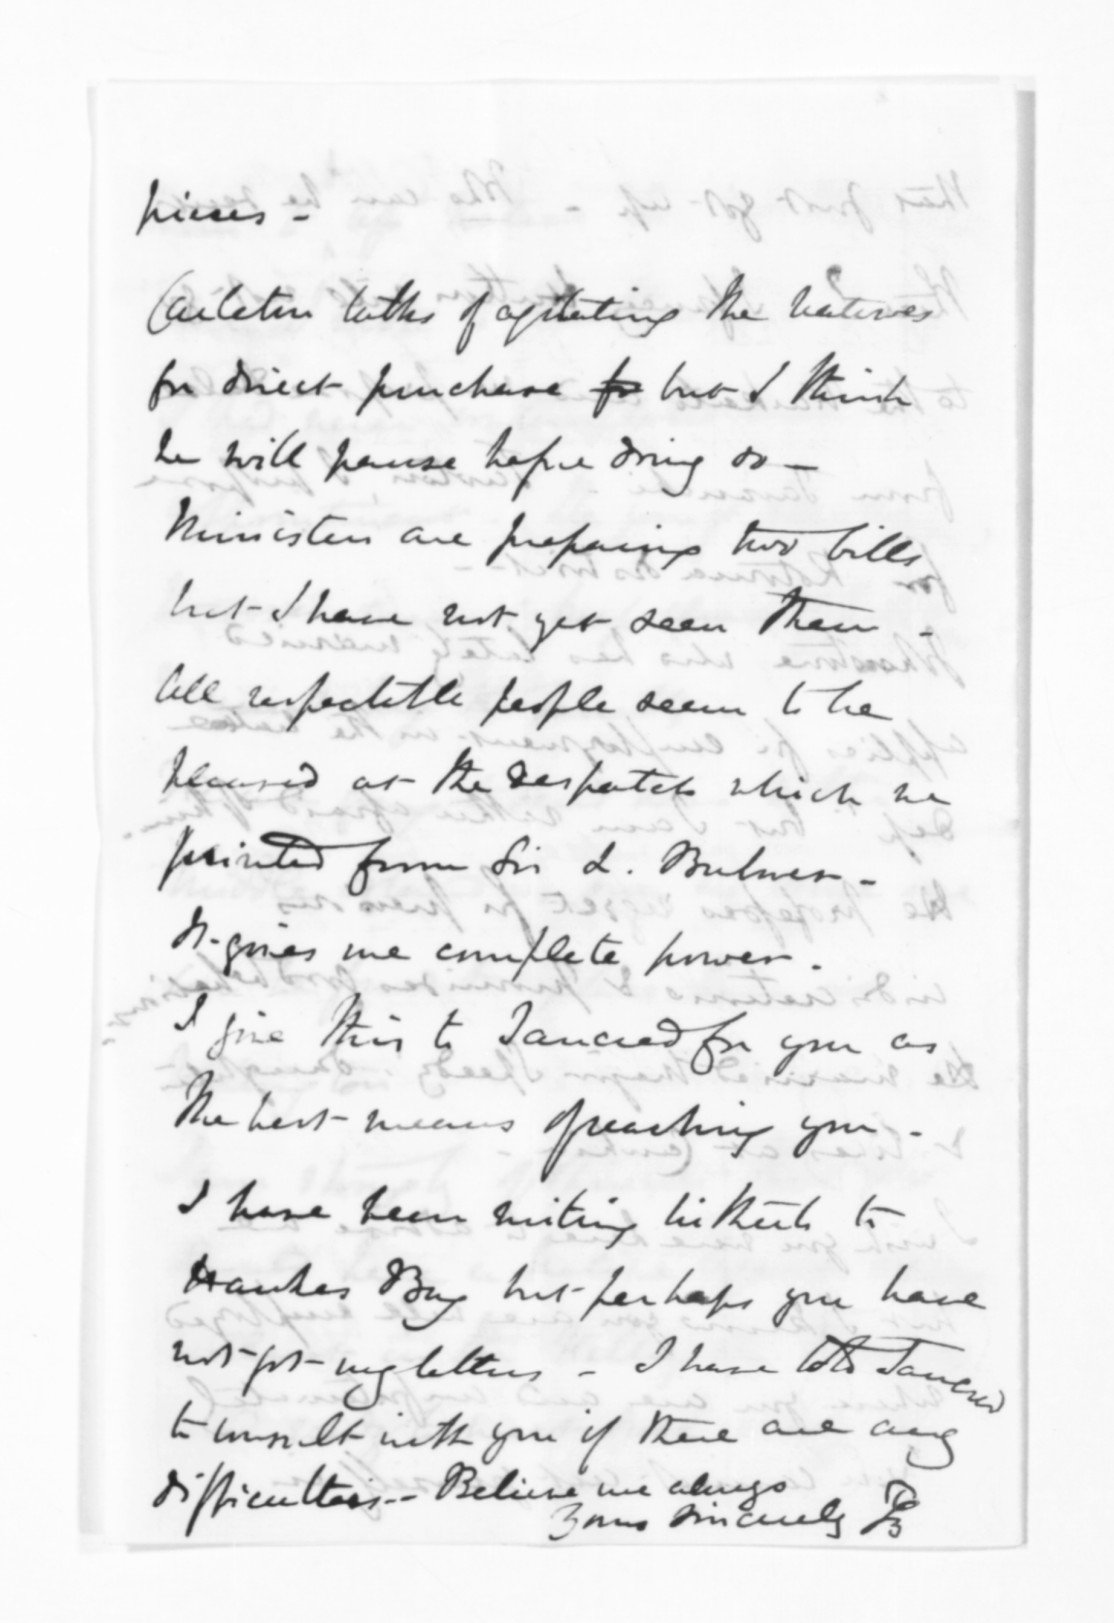 pieces -
Carleton talks of agitating the natives
for direct purchase for but I think
he will pause before doing so -
Ministers are preparing two bills
but I have not yet seen them -
All respectable people seem to be
pleased at the despatch which we
printed from Sir L. Bulwer -
It gives me complete power.
I give this to Tancred for you as
the best means of reaching you -
I have been writing hitherto to
Hawkes Bay but perhaps you have
not got my letters - I have told Tancred
to consult with you if there are any
difficulties -- Believe me always
Yours sincerely